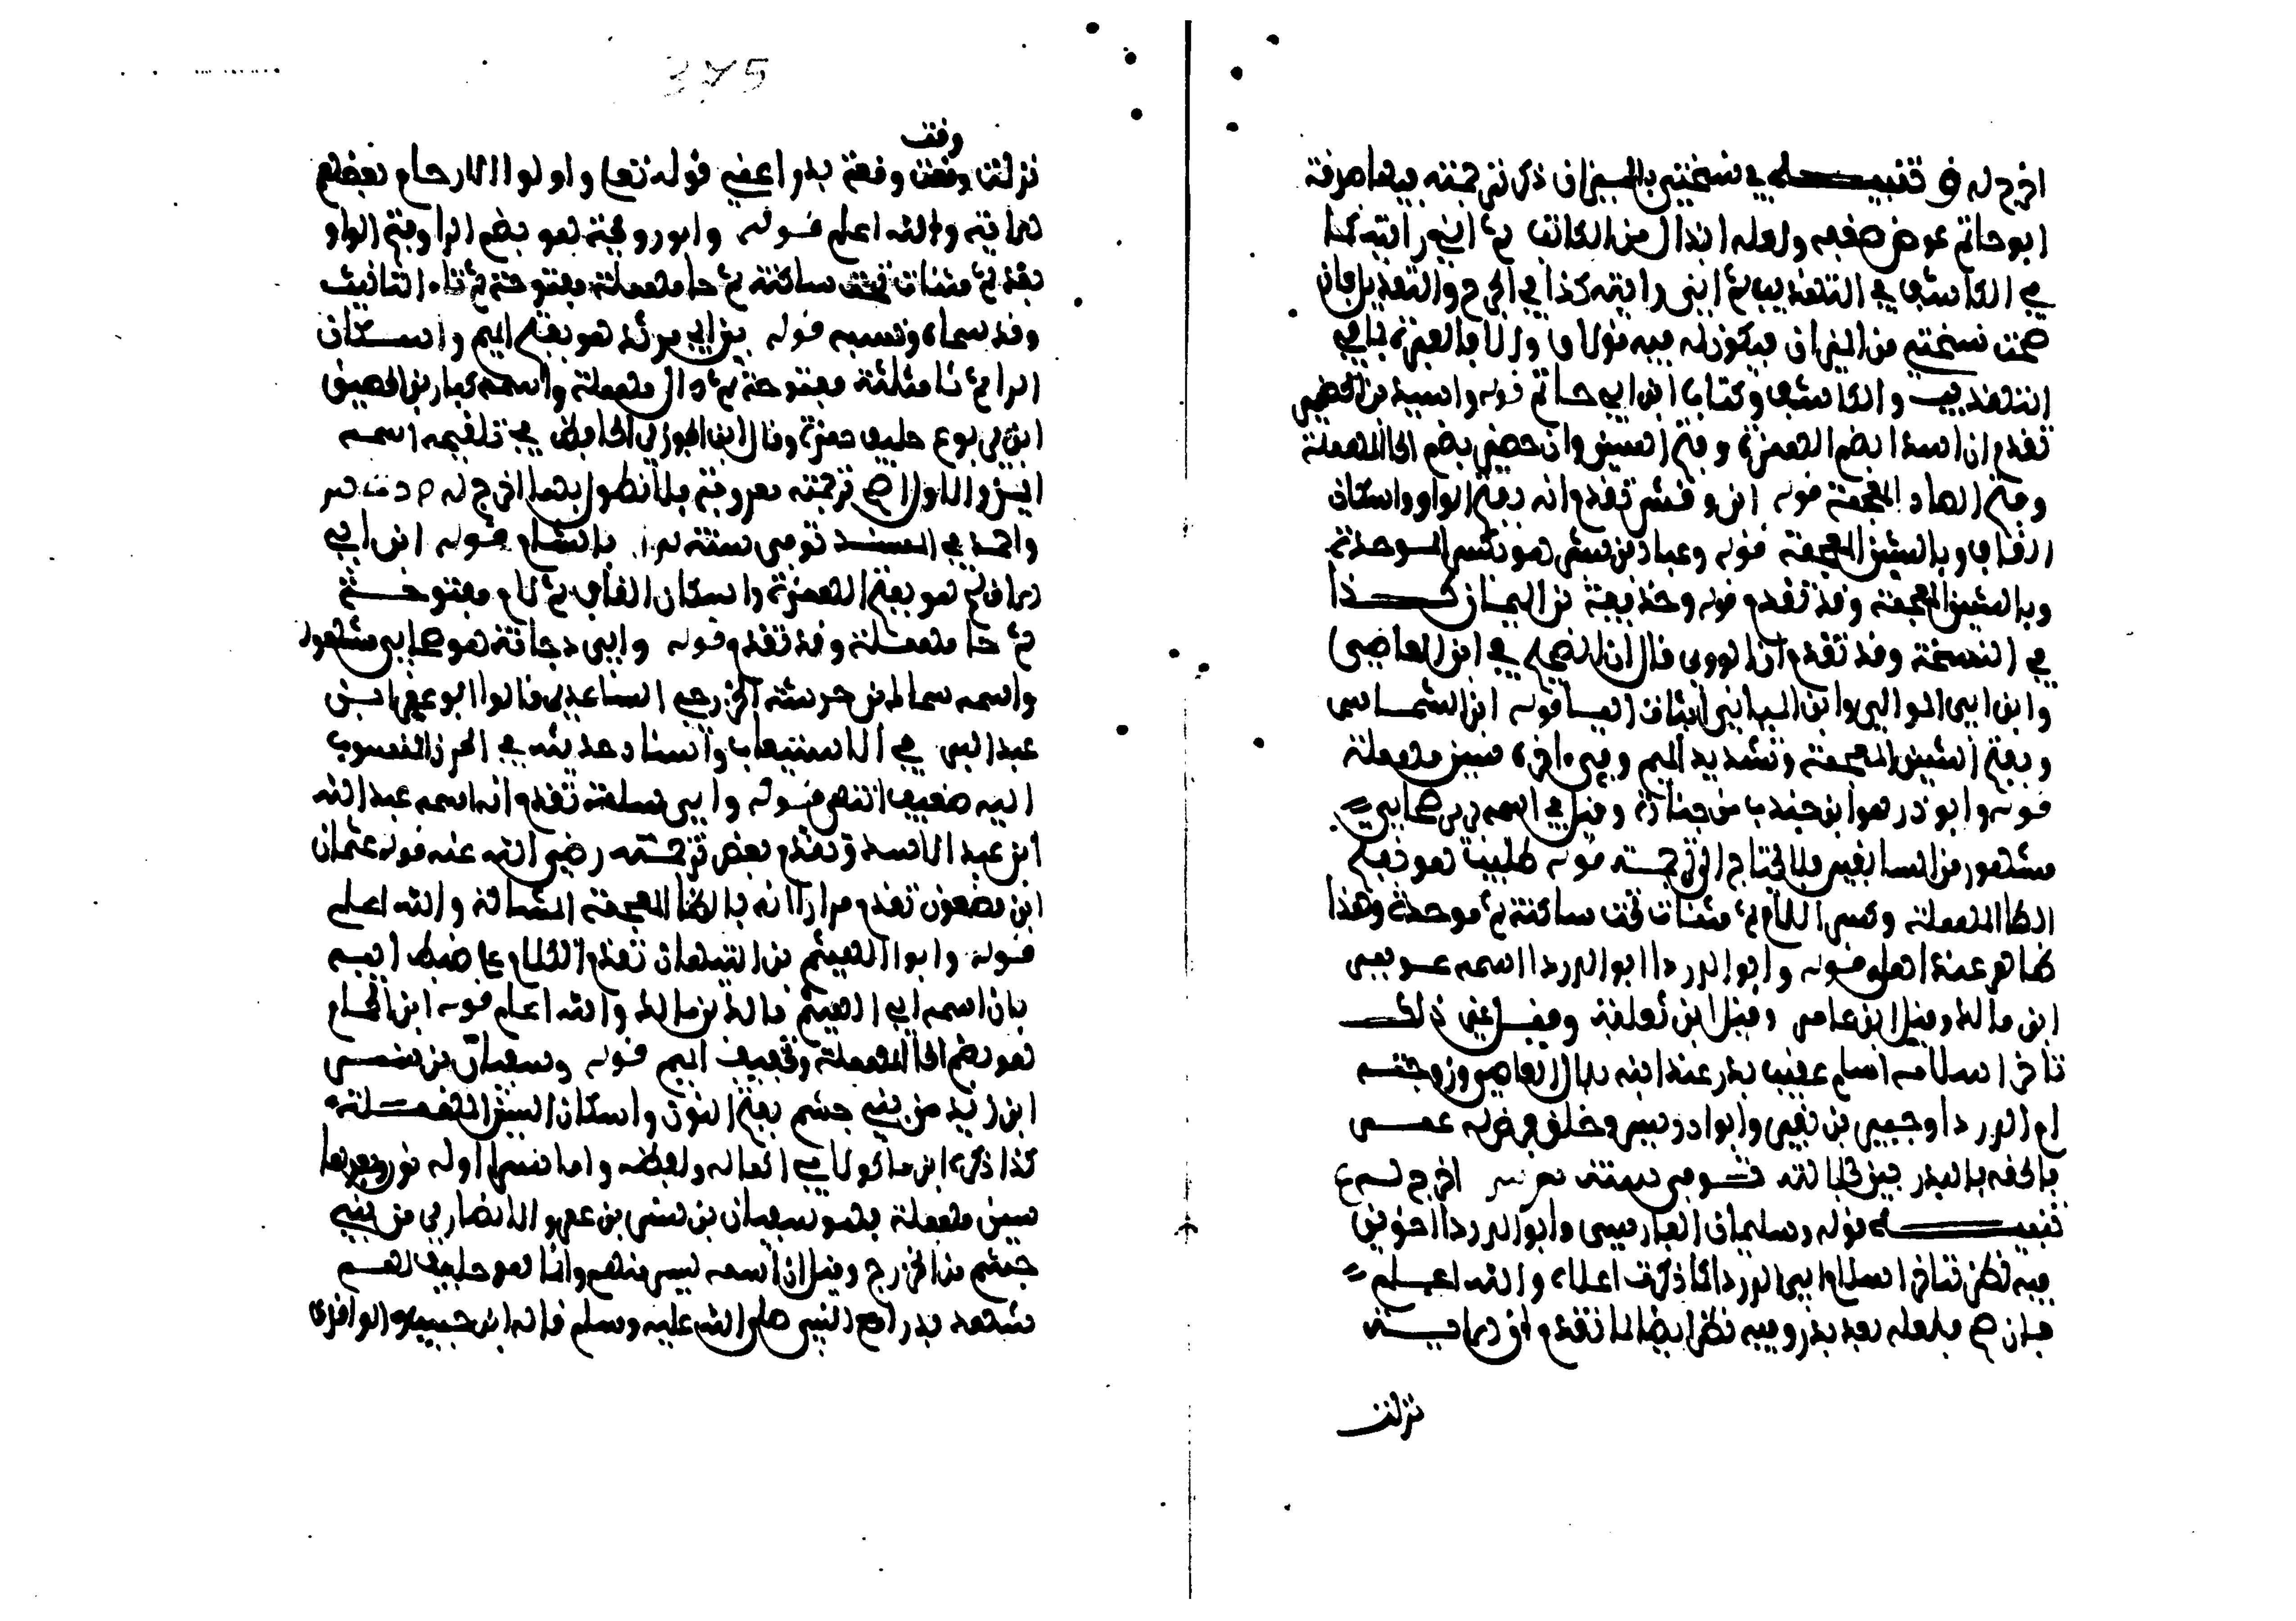 اخرج له ق تنبيه في نسختي بالميزان ذكر ترجمته فيها صرفة
ابو حاتم عوض ضعفه ولعله ابدال من الكاتب ثم اني رايته كما
في الكاشف في التهذيب ثم اني رايته كذا في الجرح والتعديل فان
صحت نسختي من الميزان فيكون له فيه قولان والا فالعبرة بما في
التهذيب والكاشف وكتاب ابن ابي حاتم قوله واسيد بن الحضير
تقدم ان اسيدا بضم الهمزة وفتح السين وان حضير بضم الحا المهملة
وفتح الضاد المعجمة قوله ابن وقش تقدم انه بفتح الواو واسكان
القاف وبالشين المعجمة قوله وعباد بن بشر هو بكسر الموحدة
وبالشين المعجمة وقد تقدم قوله وحذيفة بن اليمان كذا
في النسخة وقد تقدم ان النووي قال ان الصحيح في ابن العاصي
وابن ابي الموالي وابن اليماني اثبات اليا قوله ابن الشماس
وبفتح الشين المعجمة وتشديد الميم وفي اخره سين مهملة
قوله وابو ذر هو ابن جندب من جنادة وقيل في اسمه برير صحابي
مشهور من السابقين فلا يحتاج الى ترجمته قوله طليب هو بفتح
الطا المهملة وكسر اللام ثم مثنات تحت ساكنة ثم موحدة وهذا
ظاهر عند اهله قوله وابو الدردا ابو الدردا اسمه عويمر
ابن مالك وقيل ابن عامر وقيل ابن ثعلبة وقيل غير ذلك
تاخر اسلامه اسلم عقيب بدر عنه ابنه بلال القاضي وزوجته
ام الدردا وجبير بن نفير وابو ادريس وخلق فرض له عمر
بالحقه بالبدريين لجلالته توفي سنة اخرج له ع
تنبيه قوله وسلمان الفارسي وابو الدردا اخوين
فيه نظر لتاخر اسلام ابي الدردا كما ذكرت اعلاه والله اعلم
فان صح فلعله بعد بدر وفيه نظر ايضا لما تقدم في دراية
نزلت
375
وقت
نزلت وقعت وقعة بدر اعني قوله تعالى واولوا الارحام بعضهم
دراية والله اعلم قوله وابو رويحة هو بضم الرا وفتح الواو
بعده ثم مثنات تحت ساكنة ثم حا مهملة مفتوحة ثم تاء التانيث
وقد سماه ونسبه قوله بن ابي مرثد هو بفتح الميم واسكان
الرا ثم ثا مثلثة مفتوحة ثم دال مهملة واسمه كناز بن الحصين
ابن يربوع حليف حمزة وقال ابن الجوزي الحافظ في تلقيحه اسمه
ايمن والاول اصح ترجمته معروفة فلا نطول بها اخرج له م د ت س
واحمد في المسند توفي سنة بالشام قوله ابن ابي
الاقلح هو بفتح الهمزة واسكان القاف ثم لام مفتوحة
ثم حا مهملة وقد تقدم قوله وابي دجانة هو صحابي مشهور
واسمه سماك بن خرشة الخزرجي الساعدي قالوا ابو عمر ابن
عبد البر في الاستيعاب واسناد حديثه في الحرز المنسوب
اليه ضعيف انتهى قوله وابي سلمة تقدم انه اسمه عبد الله
ابن عبد الاسد وتقدم بعض ترجمته رضي الله عنه قوله عثمان
ابن مضعون تقدم مرارا انه بالظا المعجمة المشالة والله اعلم
قوله وابوا الهيثم بن التيهان تقدم الكلام على ضبط ابيه
بان اسم ابي الهيثم مالك بن مالك والله اعلم قوله ابن الحمام
هو بضم الحا المهملة وتخفيف الميم قوله وسفيان بن نسر
ابن زيد من بني جشم بفتح النون واسكان السين المهملة
كذا ذكره ابن ماكولا في اكماله ولفظه واما نسر اوله نون وبعدها
سين مهملة فهو سفيان بن نسر بن عمرو الانصاري من بني
جشم من الخزرج وقيل ان اسمه ليس منهم وانما هو حليف لهم
شهد بدرا مع النبي صلى الله عليه وسلم قاله ابن حبيب والواقدي